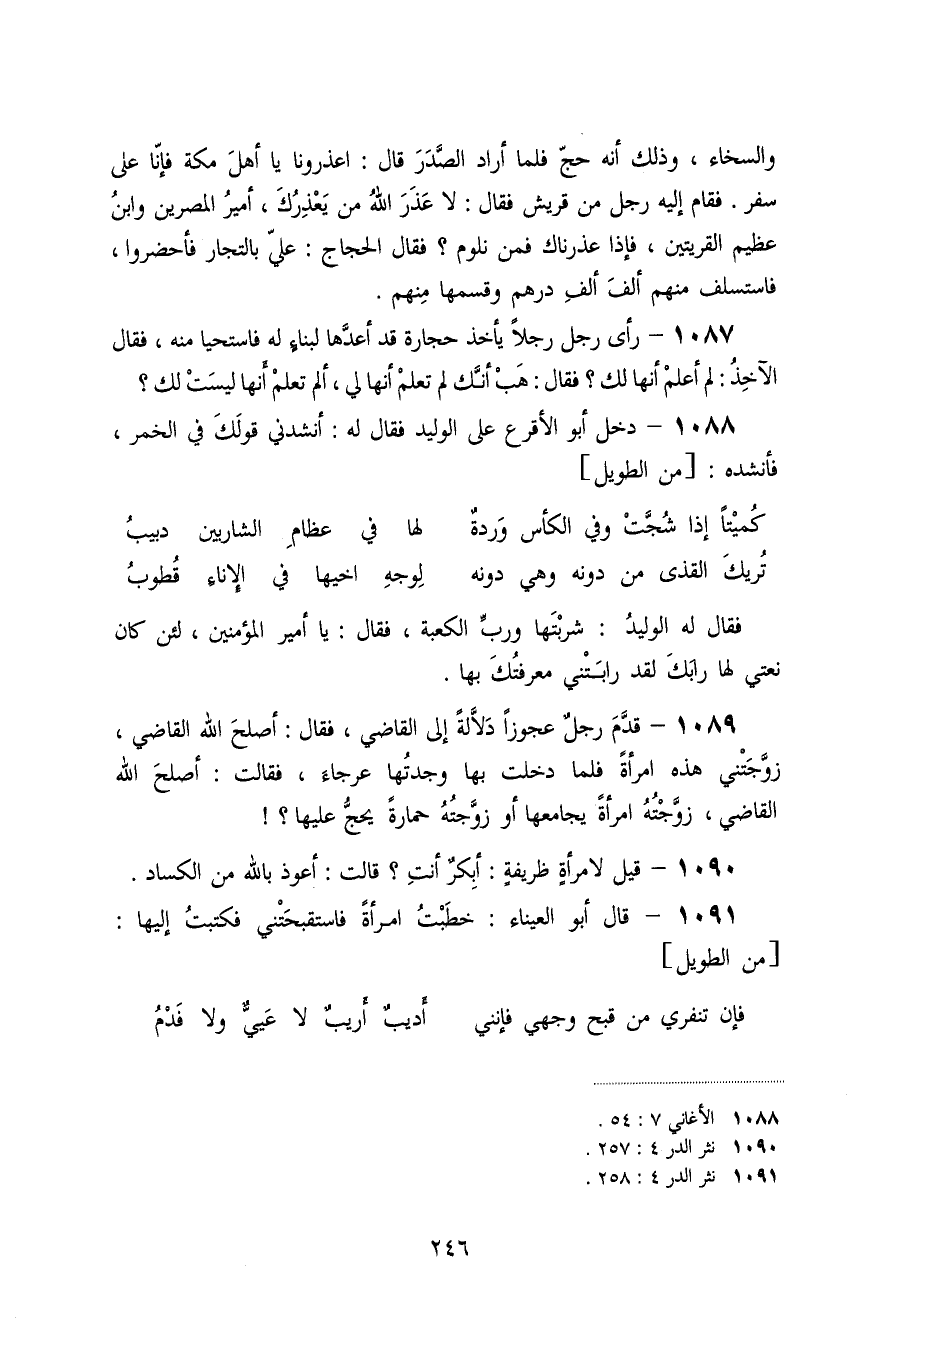 والسخاء ، وذلك أنه حجّ فلما أراد الصَّدَرَ قال : اعذرونا يا أهلَ مكة فإنّا على
سفر . فقام إليه رجل من قريش فقال : لا عَذَرَ اللهُ من يَعْذِرُكَ ، أميرُ المصرين وابنُ
عظيم القريتين ، فإذا عذرناك فمن نلوم ؟ فقال الحجاج : عليّ بالتجار فأحضروا ،
فاستسلف منهم ألفَ ألفِ درهم وقسمها مِنهم .
١٠٨٧ – رأى رجل رجلاً يأخذ حجارة قد أعدَّها لبناءٍ له فاستحيا منه ، فقال
الآخِذُ : لم أعلمْ أنها لك ؟ فقال : هَبْ أنَّك لم تعلمْ أنها لي ، ألم تعلمْ أنها ليسَتْ لك ؟
١٠٨٨ – دخل أبو الأقرع على الوليد فقال له : أنشدني قولَكَ في الخمر ،
فأنشده : [من الطويل]
كُميْتاً إذا شُجَّتْ وفي الكأس وَردةٌ لها في عظامِ الشاربين دبيبُ
تُريكَ القذى من دونه وهي دونه لِوجهِ اخيها في الإناء قُطوبُ
فقال له الوليدُ : شربْتَها وربِّ الكعبة ، فقال : يا أمير المؤمنين ، لئن كان
نعتي لها رابَكَ لقد رابَتْني معرفتُكَ بها .
١٠٨٩ – قدَّمَ رجلٌ عجوزاً دَلاَّلةً إلى القاضي ، فقال : أصلحَ الله القاضي ،
زوَّجَتْني هذه امرأةً فلما دخلت بها وجدتُها عرجاء ، فقالت : أصلحَ الله
القاضي ، زوَّجْتُهُ امرأةً يجامعها أو زوَّجتُهُ حمارةً يحجُّ عليها ؟ !
١٠٩٠ – قيل لامرأةٍ ظريفةٍ : أبِكرٌ أنتِ ؟ قالت : أعوذ بالله من الكساد .
١٠٩١ – قال أبو العيناء : خطَبْتُ امرأةً فاستقبحَتْني فكتبتُ إليها :
[من الطويل]
فإن تنفري من قبح وجهي فإنني أَديبٌ أَريبٌ لا عَييٌّ ولا فَدْمُ
١٠٨٨ الأغاني ٧ : ٥٤ .
١٠٩٠ نثر الدر ٤ : ٢٥٧ .
١٠٩١ نثر الدر ٤ : ٢٥٨ .
٢٤٦